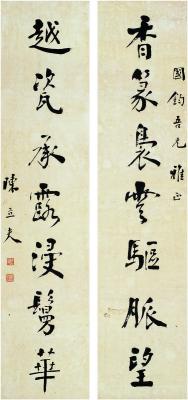 國鈞吾兄 雅正
香篆裊雲驅脈望
越瓷承露浸鬘華
陳立夫